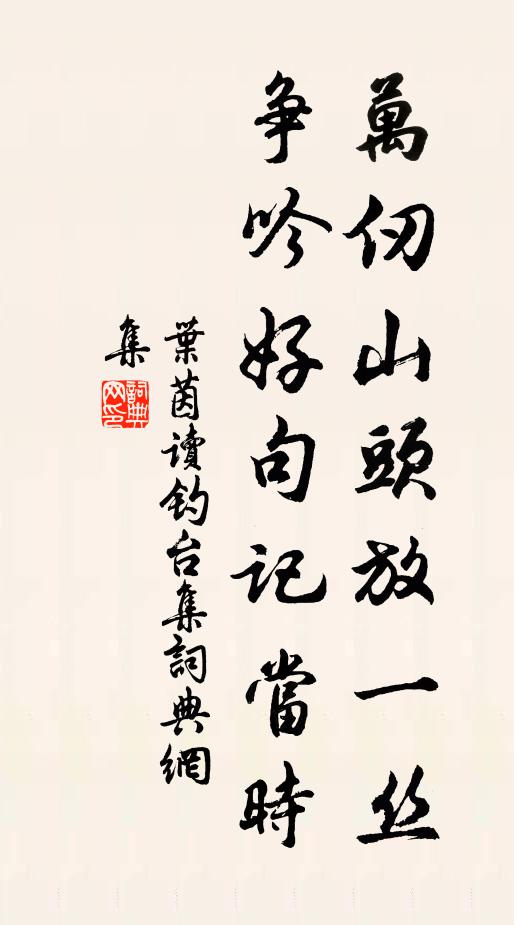 萬仞山頭放一丝
争吟好句記當時
葉茵讀釣台集詞典網
集
詞典
网印